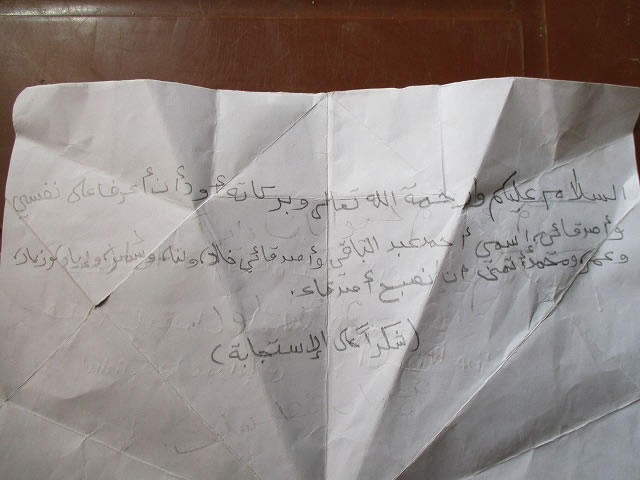 السلام عليكم وارحمة الله تعالى وبركاته أودأن أعرفا على نفسي
وأصدقائي، إسمي أحمد عبد الباقي وأصدقائي خالد، ولنا، و
وعمر، ومحمد أتمنى أن نصبح أصدقاء.
(شكراً على الإستجابة)